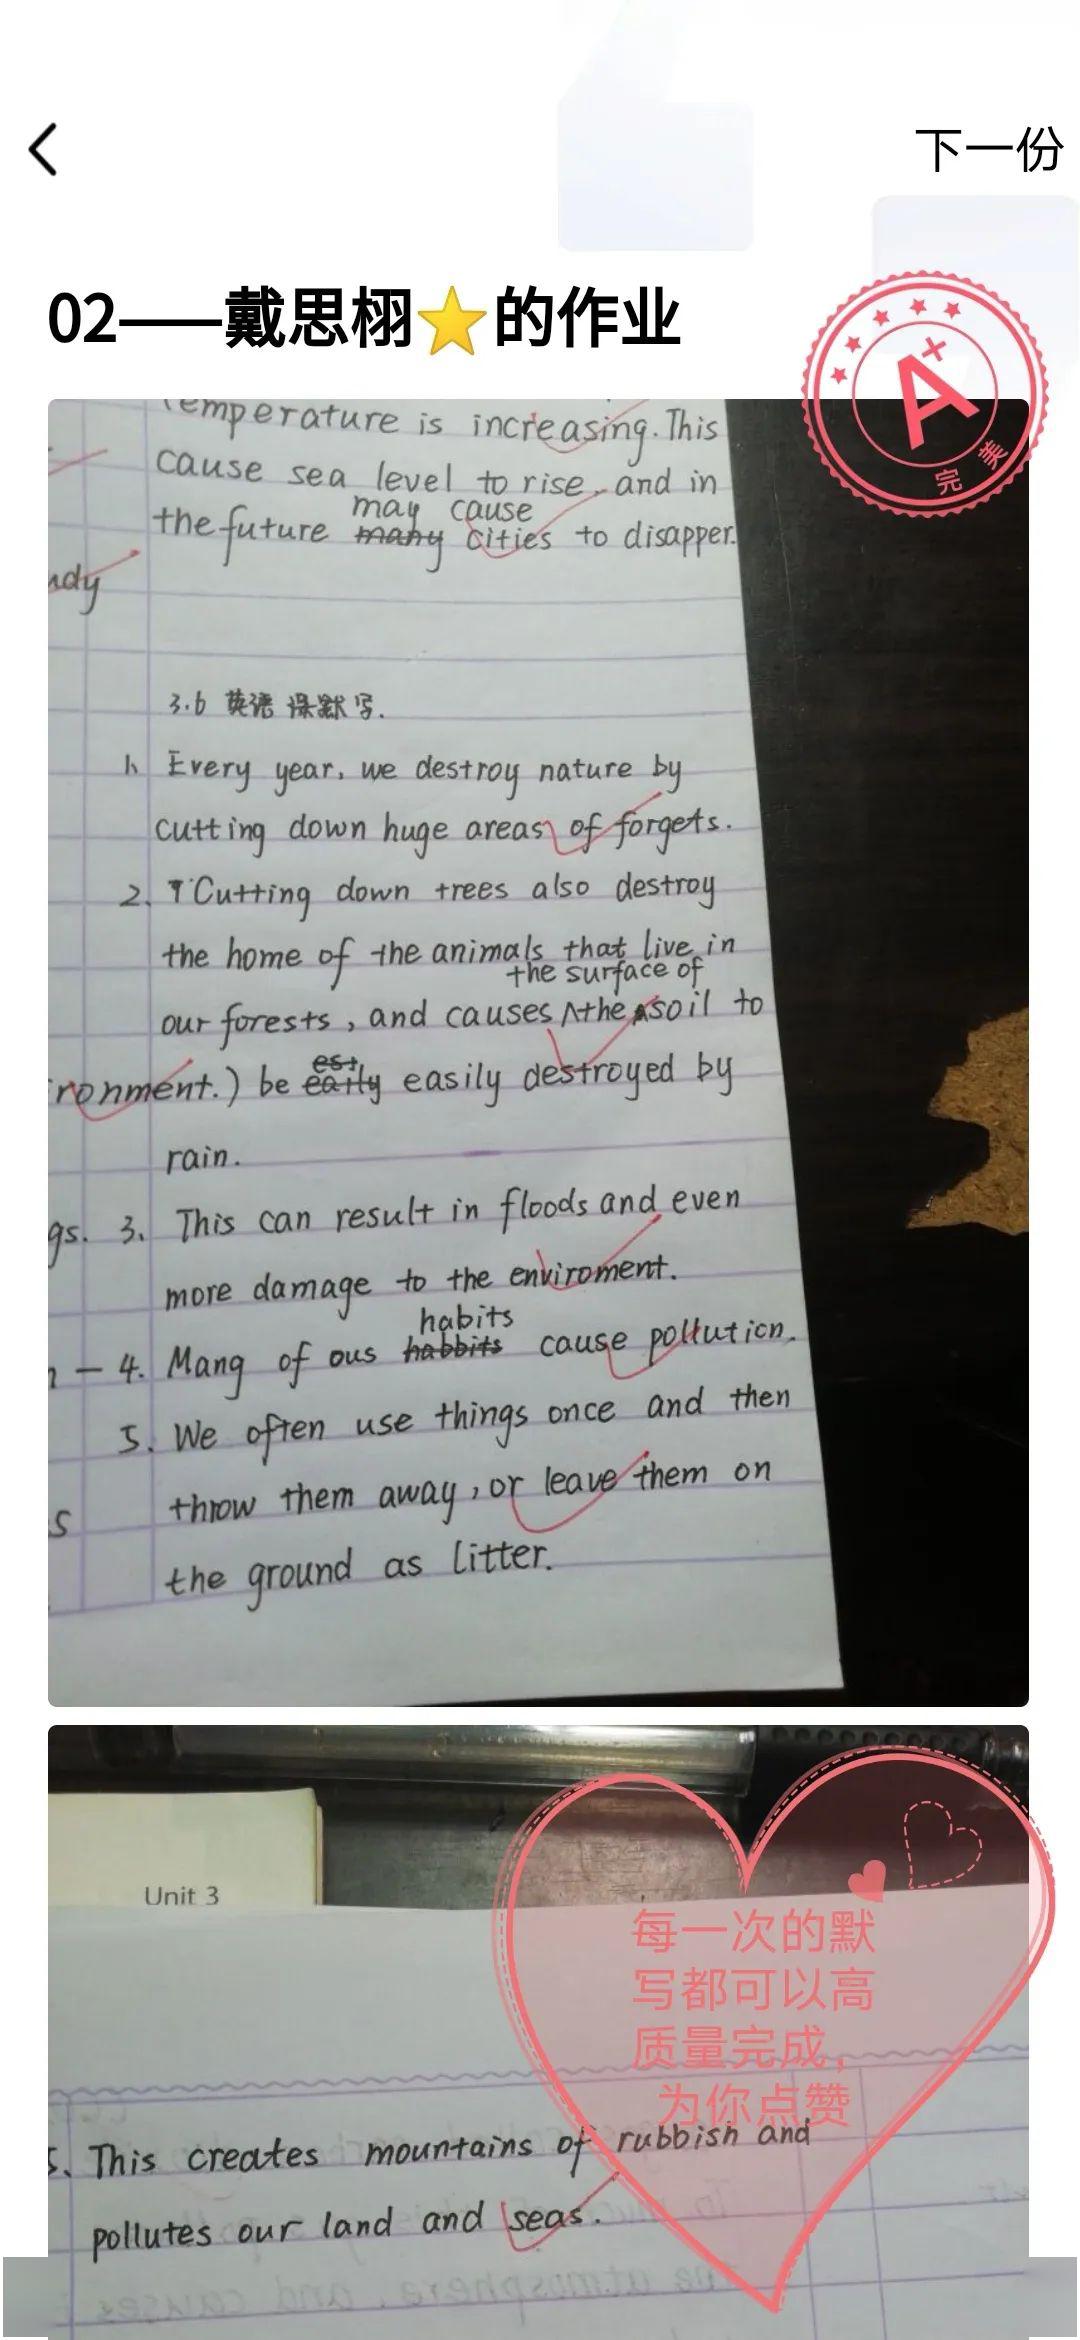 下一份
02——戴思栩⭐的作业
A+
完美
Temperature is increasing. This
cause sea level to rise, and in
may cause
the future many cities to disapper.
ndy
3.6 英语 课默写.
1. Every year, we destroy nature by
cutting down huge areas of forgets.
2. Cutting down trees also destroy
the home of the animals that live in
the surface of
our forests, and causes the soil to
est
ronment.) be earty easily destroyed by
rain.
gs. 3. This can result in floods and even
more damage to the enviroment.
habits
4. Mang of ous habbits cause pollution.
5. We often use things once and then
throw them away, or leave them on
s
the ground as litter.
Unit 3
每一次的默
写都可以高
质量完成，
为你点赞
5. This creates mountains of rubbish and
pollutes our land and seas.